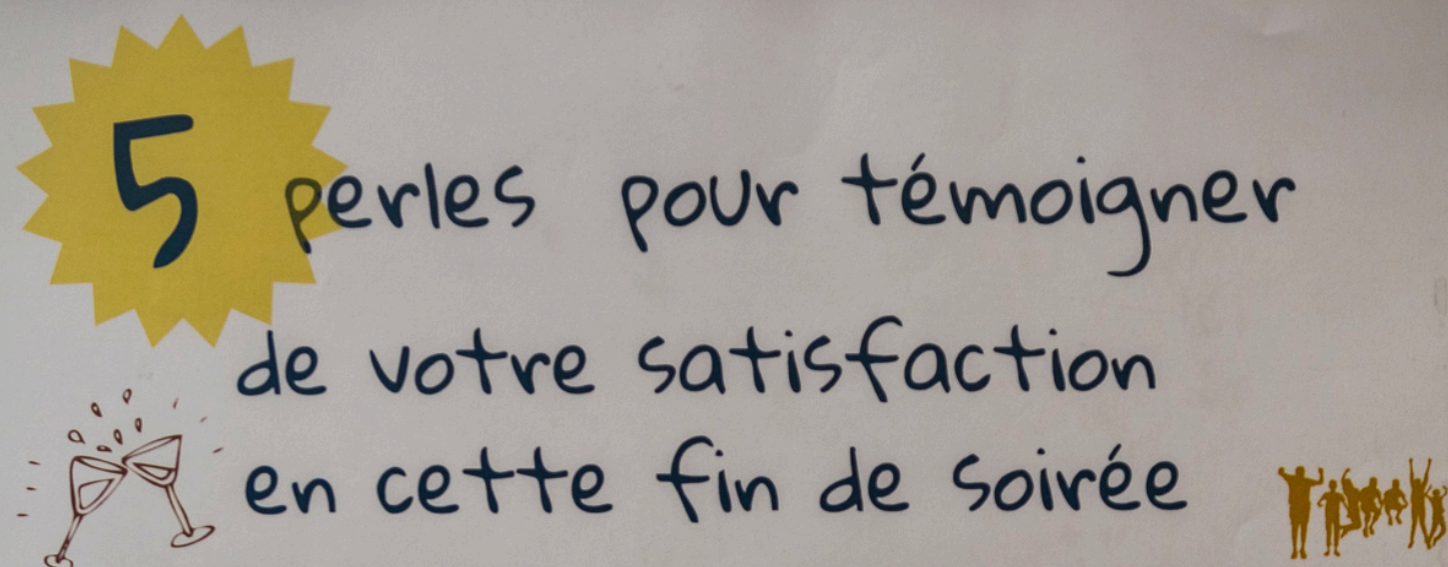 5 perles pour témoigner
de votre satisfaction
en cette fin de soirée